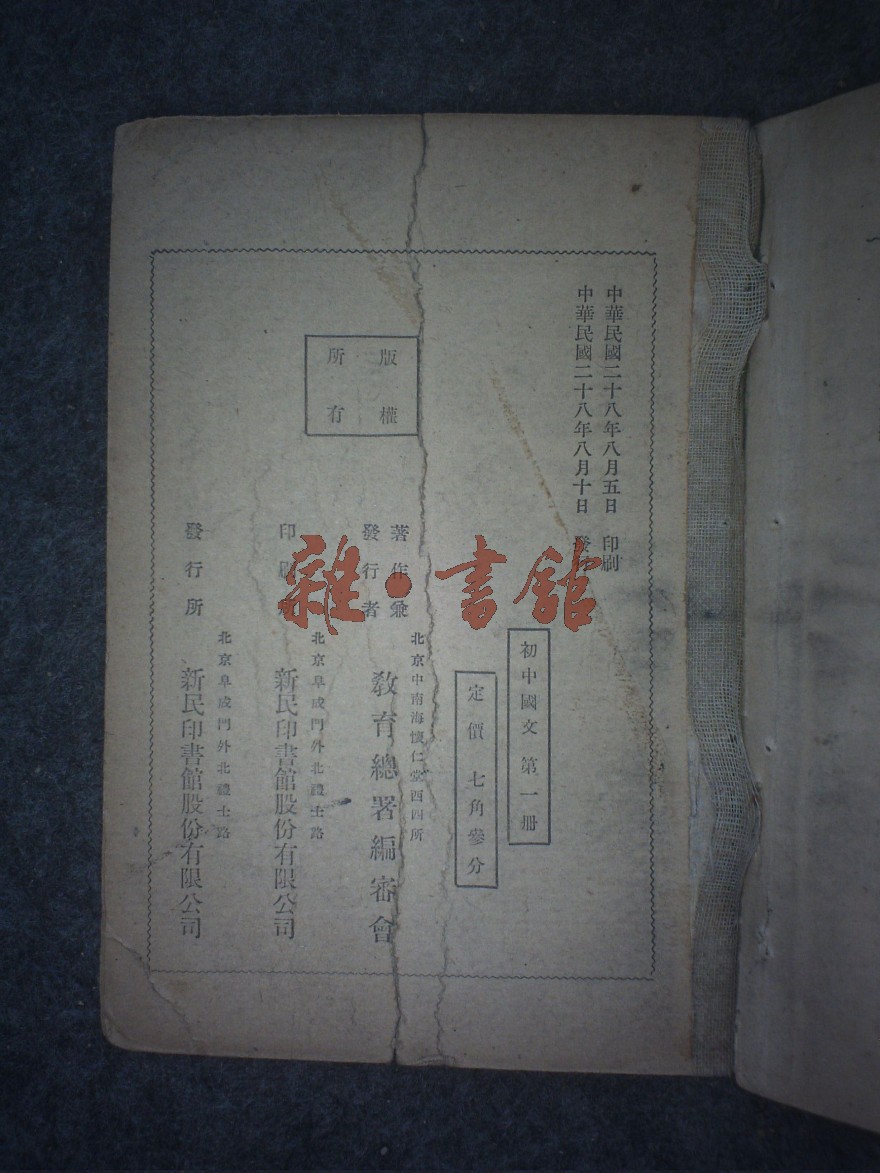 中華民國二十八年八月五日 印刷
中華民國二十八年八月十日 發行
初中國文 第一册
定價 七角參分
版權
所有
著作兼
發行者
北京中南海懷仁堂西四所
教育總署編審會
印刷所
北京阜成門外北禮士路
新民印書館股份有限公司
發行所
北京阜成門外北禮士路
新民印書館股份有限公司
雜·書館